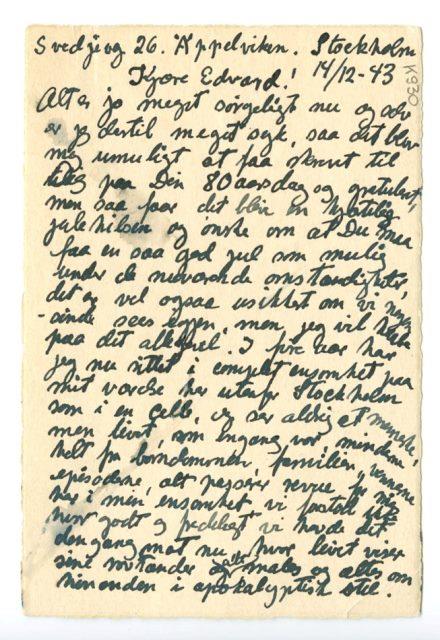 Svedjevg 26. Äppelviken. Stockholm
14/12-43
K930
Kjære Edvard!
Alt er jo meget sørgeligt nu og selv
er jeg dertil meget syk, saa det blev
mig umuligt at faa skrevet til
paa Din 80 aarsdag og gratulert,
men saa faar det bli en hjærtelig
julehilsen og ønske om at Du maa
faa en saa god jul som mulig
under de nuværende omstændigheter,
det er vel ogsaa usikkert om vi nogen-
sinde sees igjen, men jeg vil haabe
paa det allikevel. I fire aar har
jeg nu sittet i komplet ensomhet paa
mit værelse her utenfor Stockholm
som i en celle, og ser aldrig et menneske,
men livet, som engang var, minderne
helt fra barndommen, familien, vennene
episoderne, alt passerer revue for mig
her i min ensomhet vi forstod ikke
hvor godt og fredeligt vi hadde det
dengang mot nu, hvor livet viser
sine motstander males og altes om
hinanden i apokalyptisk stil.